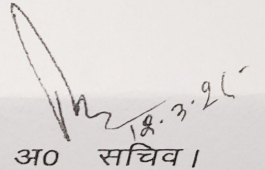 18.3.26
अ० सचिव।